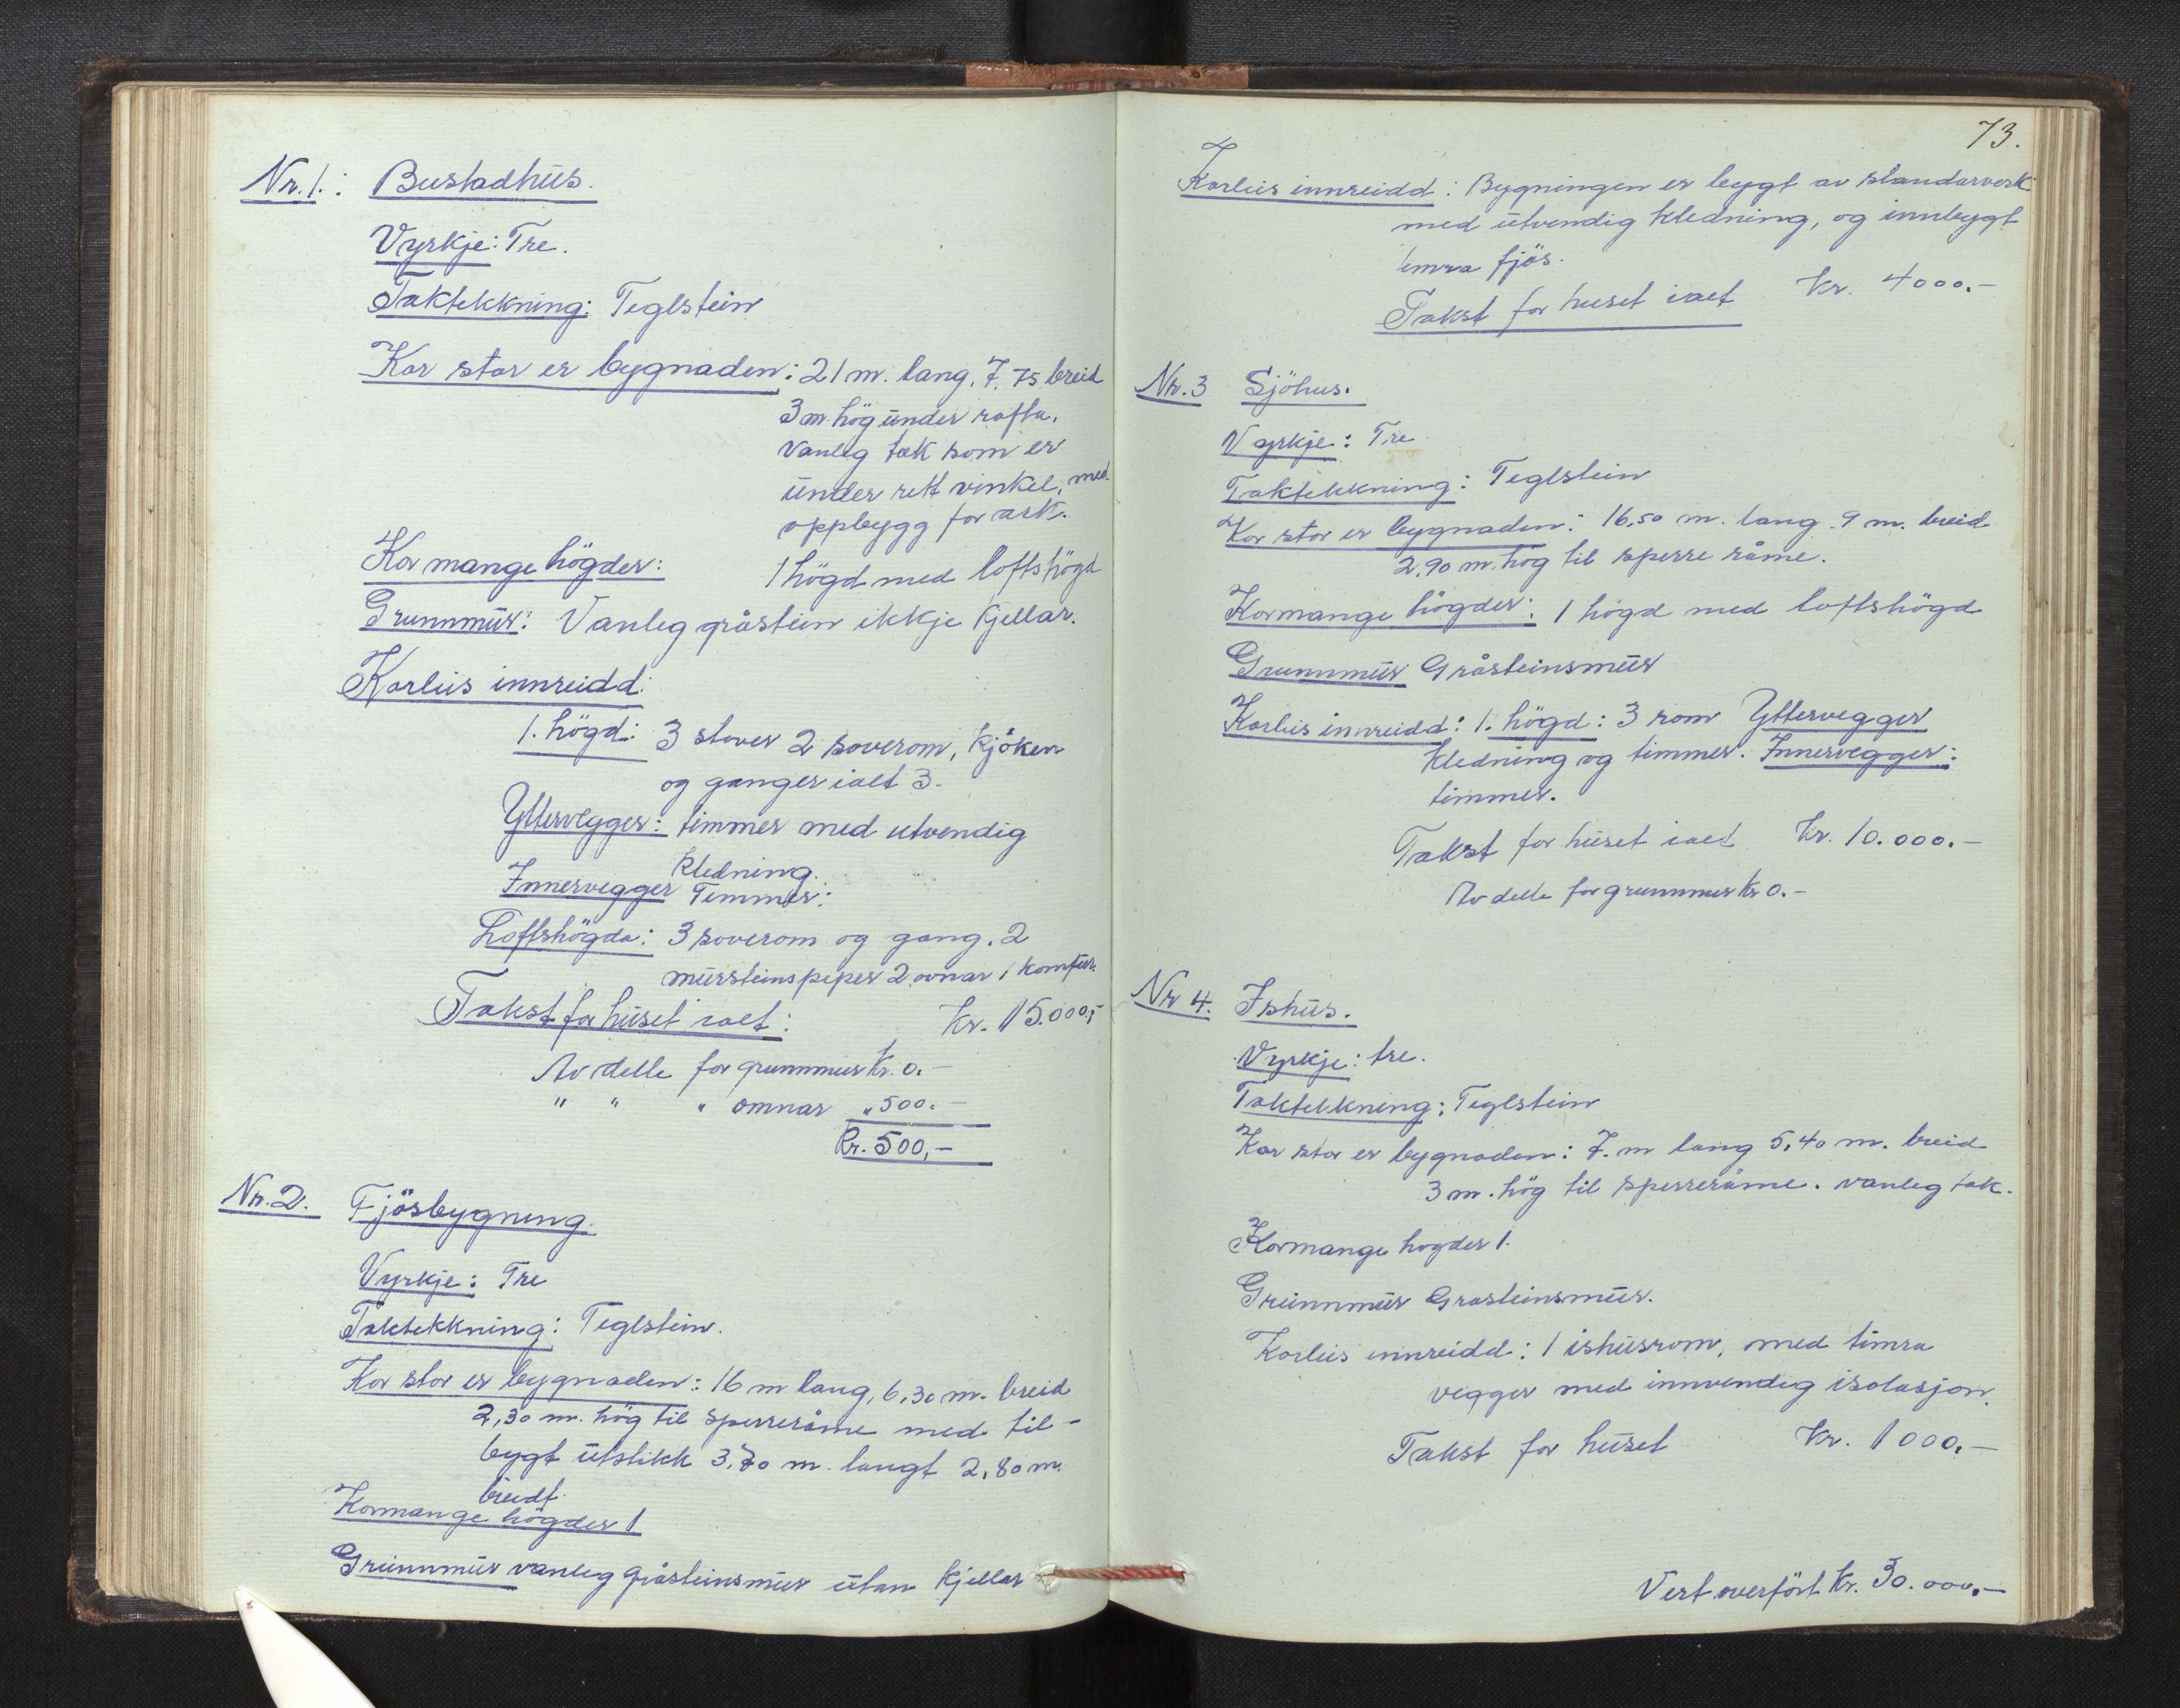 Nr. 1.: Bustadhus.
Vyrkje: Tre.
Taktekkning: Teglstein
Kor stor er bygnaden: 21 m. lang, 7.75 breid
3 m. hög under rafta.
vanleg tak som er
under rett vinkel, med
oppbygg for ark.
Kor mange högder: 1 högd med loftshögd
Grunnmur: Vanleg gråstein ikkje kjellar.
Korleis innreidd:
1. högd: 3 stover 2 soverom, kjöken
og ganger ialt 3.
Yttervegger: timmer med utvendig
kledning.
Innervegger Timmer:
Loftshögda: 3 soverom og gang. 2
mursteinspiper 2 ovnar 1 komfur.
Takst for huset ialt: kr. 15.000,-
Av dette for grunnmur kr. 0.-
" " " omnar " 500.-
Kr. 500,-
Nr. 2. Fjösbygning.
Vyrkje: Tre
Taktekkning: Teglstein.
Kor stor er bygnaden: 16 m lang, 6,30 m. breid
2,30 m. hög til sperreråme med til-
bygt utstikk 3,70 m. langt 2,80 m.
breidt.
Kormange högder 1
Grunnmur vanleg gråsteinsmur utan kjellar
73.
Korleis innreidd: Bygningen er bygt av standarverk
med utvendig kledning, og innbygt
timra fjös.
Takst for huset ialt Kr. 4000.-
Nr. 3 Sjöhus.
Vyrkje: Tre
Taktekkning: Teglstein
Kor stor er bygnaden: 16,50 m. lang. 9 m. breid
2,90 m. hög til sperreråme.
Kormange högder: 1 högd med loftshögd
Grunnmur Gråsteinsmur
Korleis innreidd: 1. högd: 3 rom Yttervegger
kledning og timmer. Innervegger:
timmer.
Takst for huset ialt Kr. 10.000.-
Av dette for grunnmur Kr 0.-
Nr 4. Ishus.
Vyrkje: tre.
Taktekkning: Teglstein
Kor stor er bygnaden: 7. m lang 5,40 m. breid
3 m. hög til sperreråme. vanleg tak.
Kormange hogder 1.
Grunnmur Grasteinsmur.
Korleis innreidd: 1 ishusrom, med timra
vegger med innvendig isolasjon.
Takst for huset Kr. 1000.-
Vert overfört Kr. 30.000.-